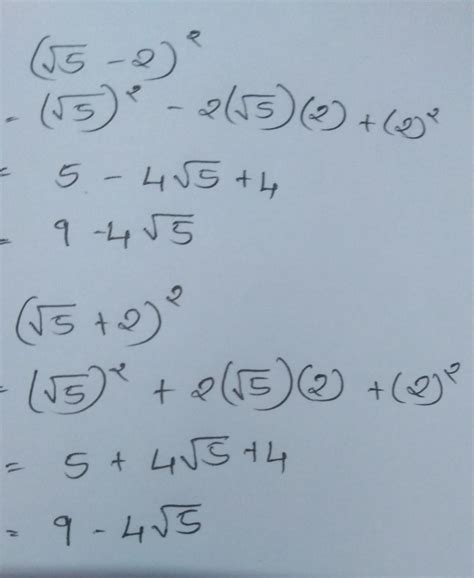 (√5 - 2)²
= (√5)² - 2(√5)(2) + (2)²
= 5 - 4√5 + 4
= 9 - 4√5
(√5 + 2)²
= (√5)² + 2(√5)(2) + (2)²
= 5 + 4√5 + 4
= 9 - 4√5